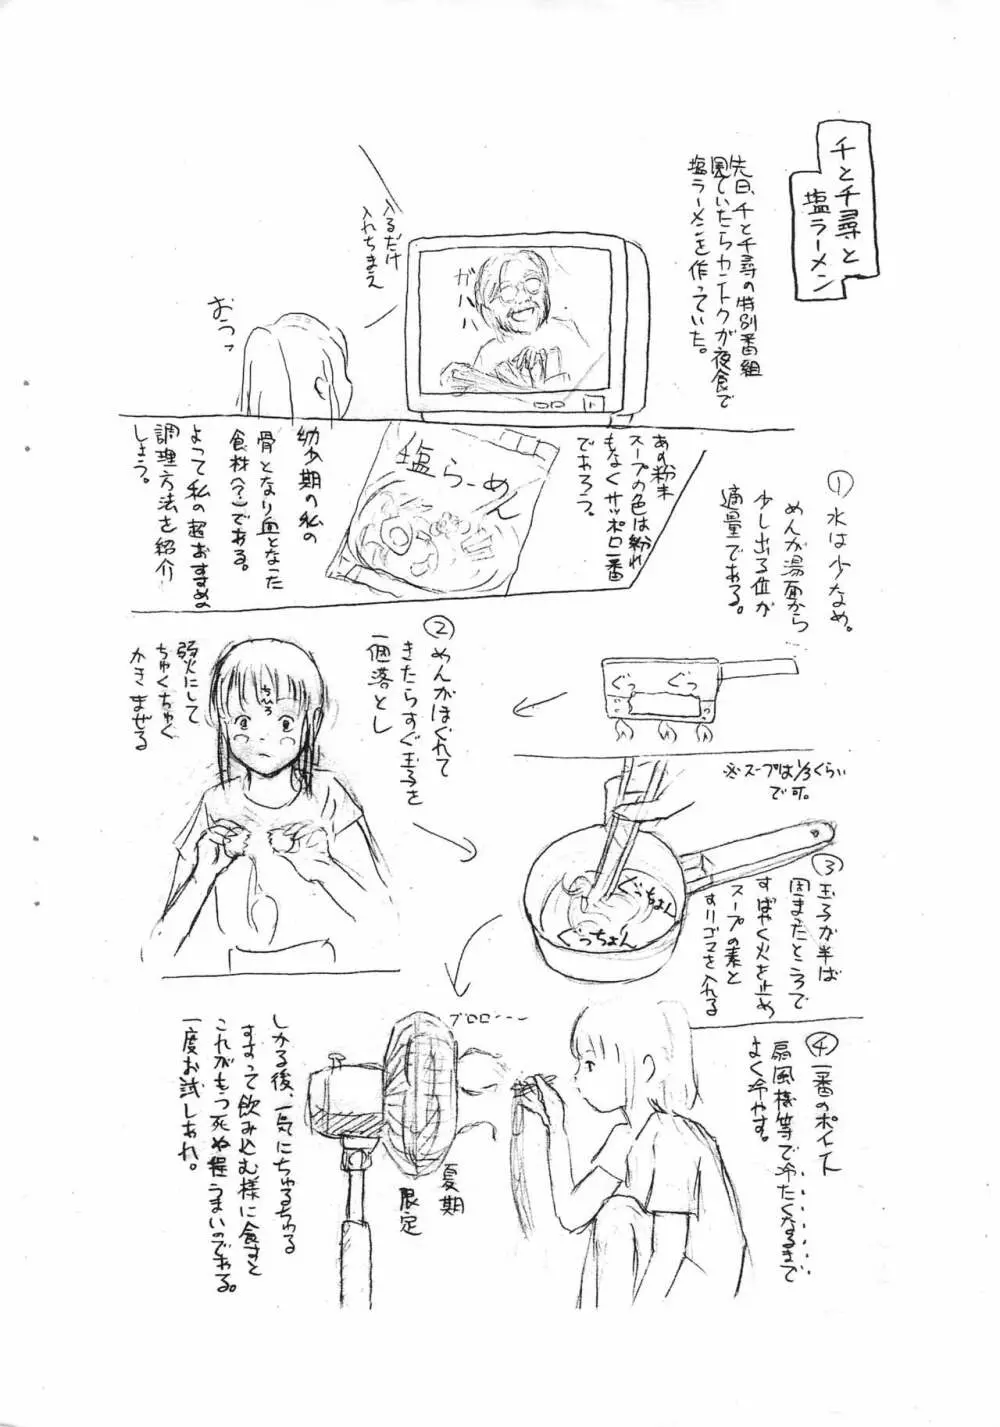 千と千尋と
塩ラーメン
先日、千と千尋の特別番組
風ていたらカントクが夜食で
塩ラーメンを作っていた。
入るだけ
入れちまえ
ガハハハ
おうっ
あの粉末
スープの色は紛れ
もなくサッポロ一番
であろう。
塩らーめん
幼少期の私の
骨となり血となった
食材(?)である。
よって私の超おすすめの
調理方法を紹介
しよう。
①水は少なめ。
めんが湯面から
少し出る位が
適量である。
ぐっ
ぐっ
②めんがほぐれて
きたらすぐ玉子を
一個落とし
弱火にして
ちゅくちゅく
かきまぜる
※スープは1/3ぐらい
で可。
ぐっちょん
ぐっちょん
③玉子が半ば
固まったところで
すばやく火を止め
スープの素と
すりゴマを入れる
④一番のポイント
扇風機等で冷たくなるまで
よく冷やす。
ブロロ---
夏期
限定
しかる後、一気にちゅるちゅる
すすって飲み込む様に食すと
これがもう死ぬ程うまいのである。
一度お試しあれ。